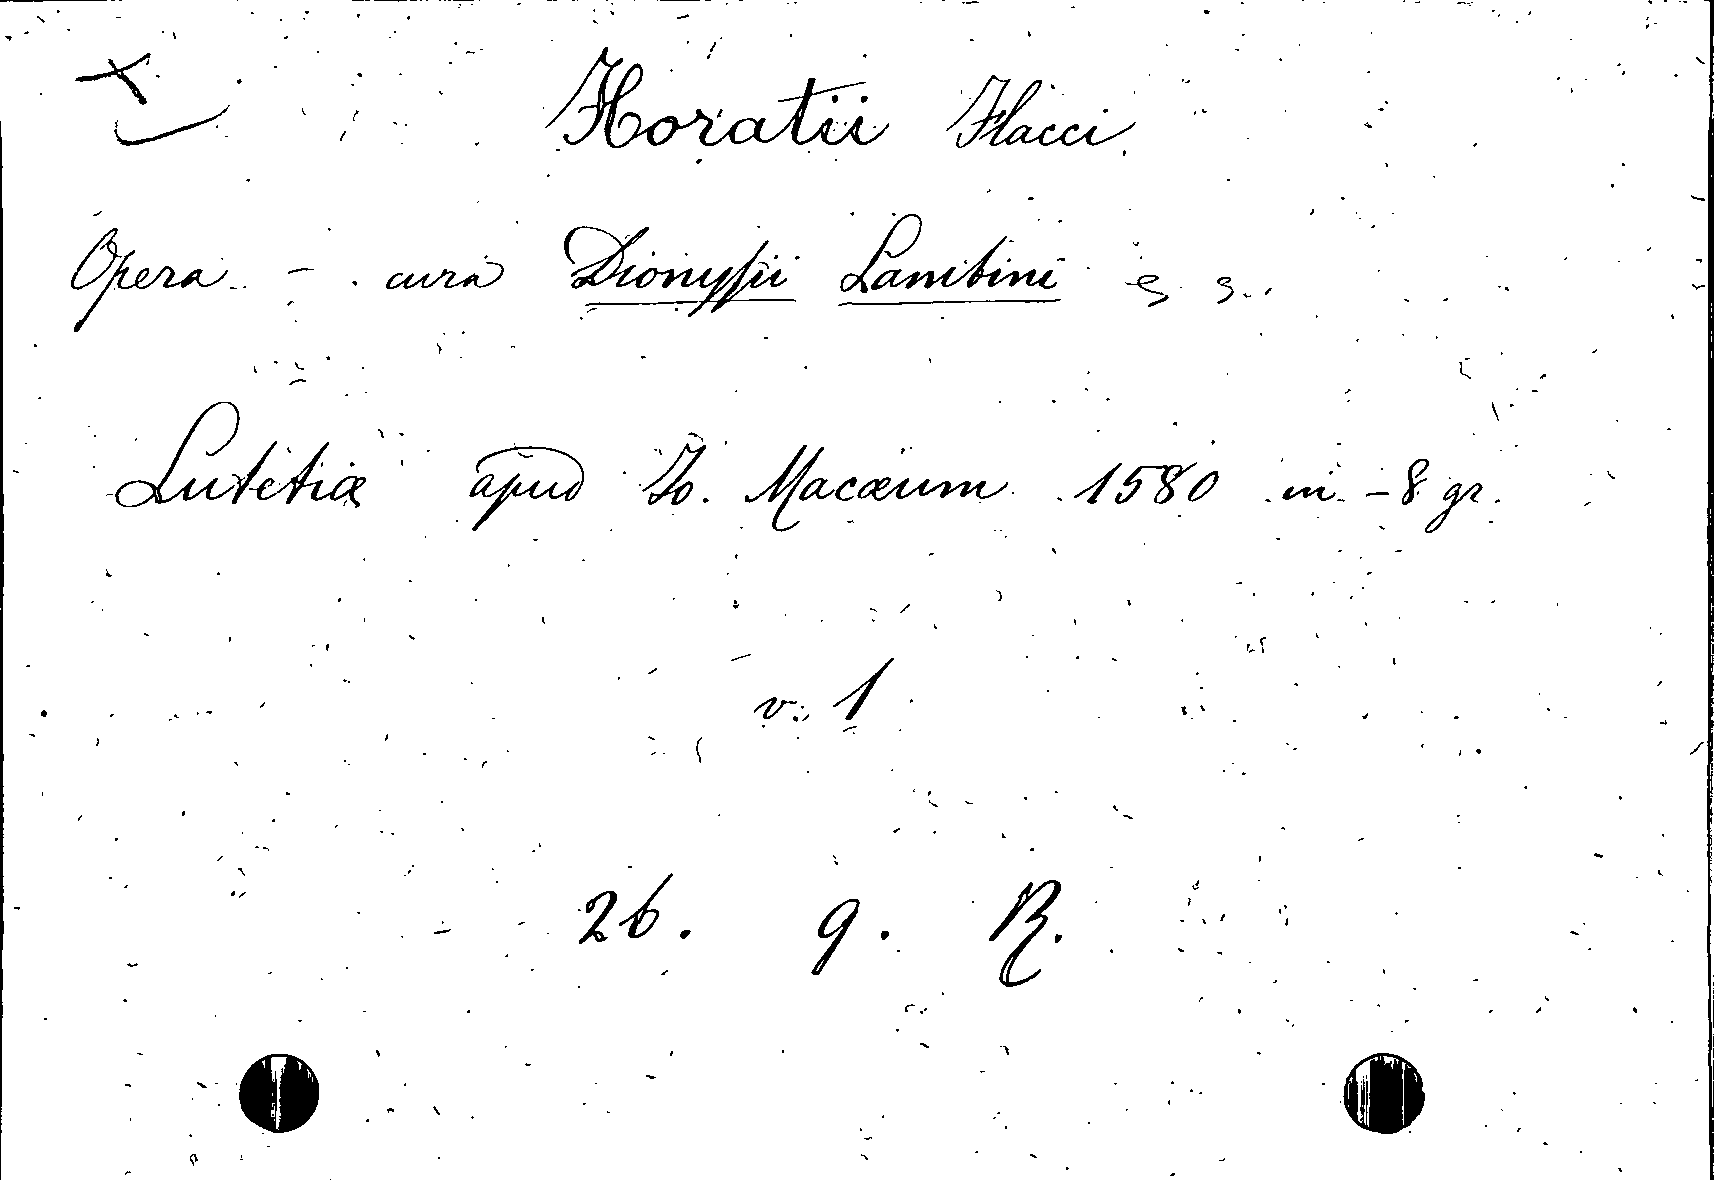 Horatii Flacci
Opera - cura Dionysii Lambini
Lutetiæ apud Io. Macæum 1580 in-8 gr.
v. 1
26. 9. R.